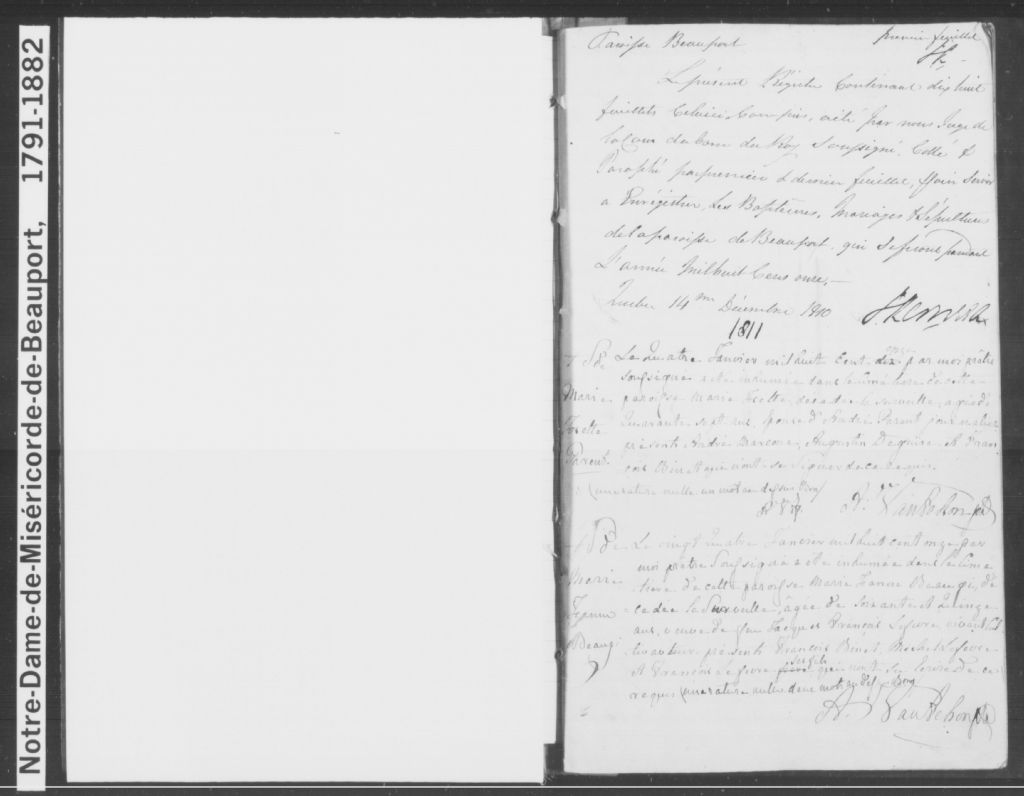 Notre-Dame-de-Miséricorde-de-Beauport, 1791-1882
Paroisse Beauport
premier feuillet
Le présent Régistre Contenant dix huit
feuillets Celuici Compris, a été par nous Juge de
la Cour du banc du Roy Soussigné, Cotté &
Paraphé par premier & dernier feuillet, afin Servir
a Enrégistrer, Les Baptêmes, Mariages & Sépultures
de la paroisse de Beauport, qui Se feront pendant
L'année Mil huit Cens onze,—
Quebec 14me Décembre 1810
1811
Sde
Marie
Parent
Le quatre Janvier mil huit cent onze par moi prêtre
soussigné a été inhumée dans le cimetiere de cette
paroisse Marie decedée la surveille, agée de
quarante sept ans, épouse d'André Parent journalier
présents André Marcoux, Augustin Deguise et Fran
çois Binet qui n'ont su signer de ce requis
(une rature nulle un mot au dessus bon)
S de
Marie
Jeanne
Le vingt quatre Janvier mil huit cent onze par
moi prêtre Soussigné a été inhumée dans le cime
tiere de cette paroisse Marie Jeanne dé
cedée la surveille, âgée de soixante et quinze
ans, veuve de feu Jacques François Lefevre vivant
présents François Binet, Michel Lefevre
et François Lefevre qui n'ont su de ce
requis (une rature nulle deux mots au bon